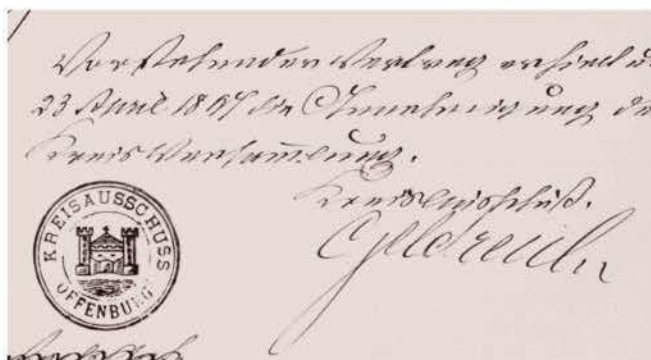 Vorstehender Vertrag erhielt
23 April 1897 die Genehmigung
Kreisversammlung.
Kreisausschuß.
KREISAUSSCHUSS
OFFENBURG